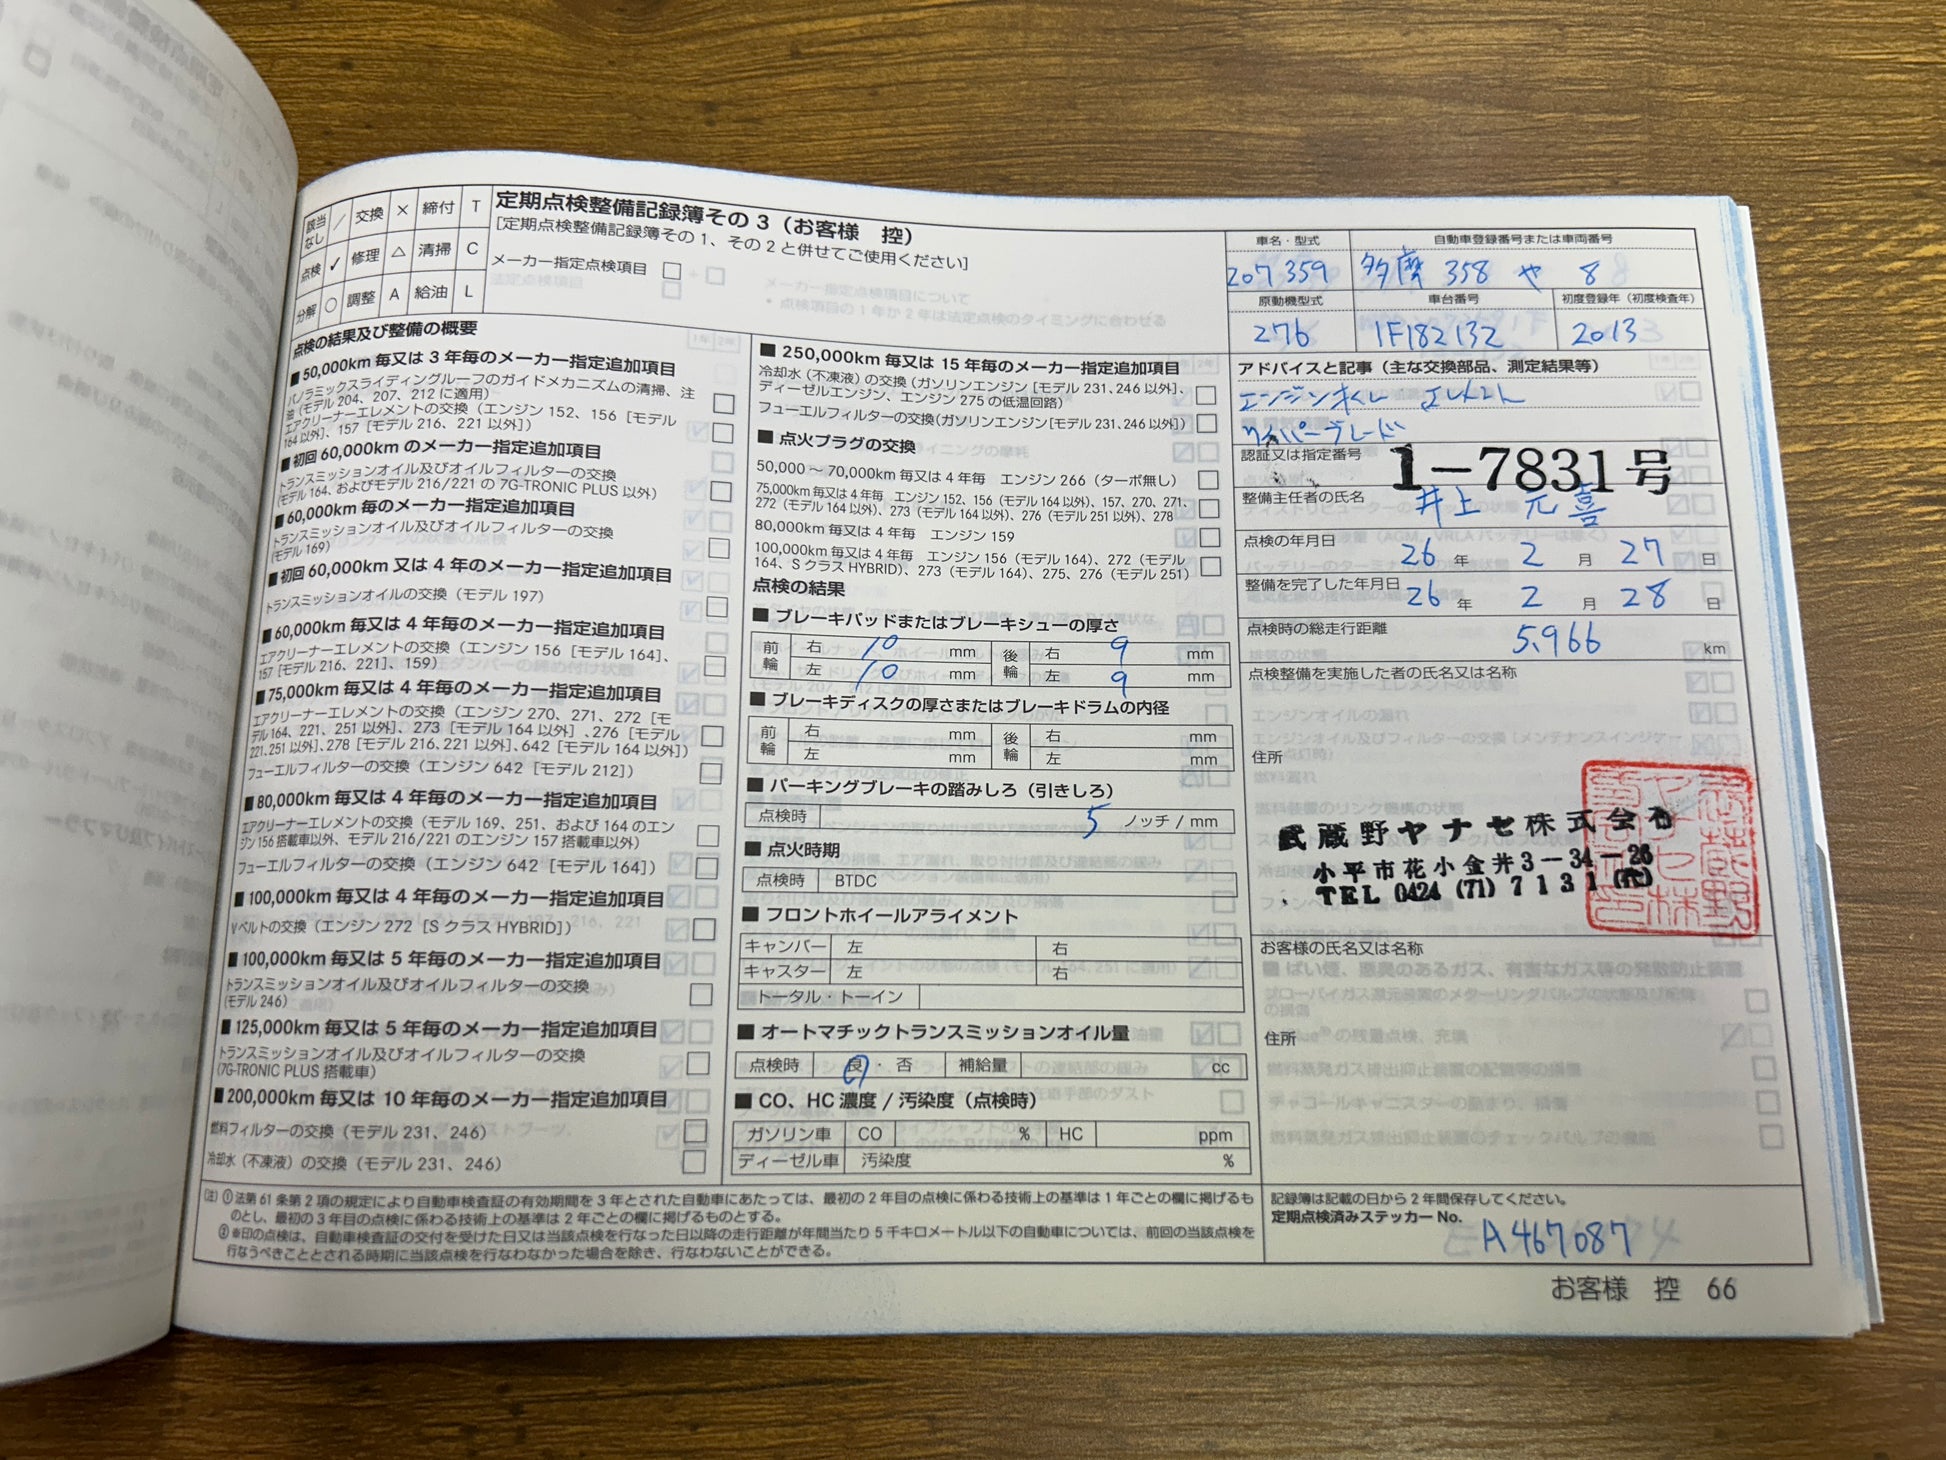 該当なし / 交換 × 締付 T
点検 ✓ 修理 △ 清掃 C
分解 ○ 調整 A 給油 L
定期点検整備記録簿その3（お客様 控）
[定期点検整備記録簿その1、その2と併せてご使用ください]
メーカー指定点検項目
点検の結果及び整備の概要
■50,000km毎又は3年毎のメーカー指定追加項目
パノラミックスライディングルーフのガイドメカニズムの清掃、注
油(モデル204、207、212に適用)
エアクリーナーエレメントの交換（エンジン152、156［モデル
164以外］、157［モデル216、221以外］）
■初回60,000kmのメーカー指定追加項目
トランスミッションオイル及びオイルフィルターの交換
(モデル164、およびモデル216/221の7G-TRONIC PLUS以外)
■60,000km毎のメーカー指定追加項目
トランスミッションオイル及びオイルフィルターの交換
(モデル169)
■初回60,000km又は4年のメーカー指定追加項目
トランスミッションオイルの交換（モデル197）
■60,000km毎又は4年毎のメーカー指定追加項目
エアクリーナーエレメントの交換（エンジン156［モデル164］、
157［モデル216、221］、159）
■75,000km毎又は4年毎のメーカー指定追加項目
エアクリーナーエレメントの交換（エンジン270、271、272［モ
デル164、221、251以外］、273［モデル164以外］、276［モデル
221,251以外］、278［モデル216、221以外］、642［モデル164以外］）
フューエルフィルターの交換（エンジン642［モデル212］）
■80,000km毎又は4年毎のメーカー指定追加項目
エアクリーナーエレメントの交換（モデル169、251、および164のエン
ジン156搭載車以外、モデル216/221のエンジン157搭載車以外）
フューエルフィルターの交換（エンジン642［モデル164］）
■100,000km毎又は4年毎のメーカー指定追加項目
Vベルトの交換（エンジン272［SクラスHYBRID］）
■100,000km毎又は5年毎のメーカー指定追加項目
トランスミッションオイル及びオイルフィルターの交換
(モデル246)
■125,000km毎又は5年毎のメーカー指定追加項目
トランスミッションオイル及びオイルフィルターの交換
(7G-TRONIC PLUS搭載車)
■200,000km毎又は10年毎のメーカー指定追加項目
燃料フィルターの交換（モデル231、246）
冷却水（不凍液）の交換（モデル231、246）
■250,000km毎又は15年毎のメーカー指定追加項目
冷却水（不凍液）の交換（ガソリンエンジン［モデル231、246以外］、
ディーゼルエンジン、エンジン275の低温回路）
フューエルフィルターの交換(ガソリンエンジン[モデル231、246以外])
■点火プラグの交換
50,000～70,000km毎又は4年毎 エンジン266（ターボ無し）
75,000km毎又は4年毎 エンジン152、156（モデル164以外）、157、270、271、
272（モデル164以外）、273（モデル164以外）、276（モデル251以外）、278
80,000km毎又は4年毎 エンジン159
100,000km毎又は4年毎 エンジン156（モデル164）、272（モデル
164、SクラスHYBRID）、273（モデル164）、275、276（モデル251）
点検の結果
■ブレーキパッドまたはブレーキシューの厚さ
前輪 右 10 mm 後輪 右 9 mm
左 10 mm 左 9 mm
■ブレーキディスクの厚さまたはブレーキドラムの内径
前輪 右 mm 後輪 右 mm
左 mm 左 mm
■パーキングブレーキの踏みしろ（引きしろ）
点検時 5 ノッチ/mm
■点火時期
点検時 BTDC
■フロントホイールアライメント
キャンバー 左 右
キャスター 左 右
トータル・トーイン
■オートマチックトランスミッションオイル量
点検時 良・否 補給量 cc
■CO、HC濃度/汚染度（点検時）
ガソリン車 CO % HC ppm
ディーゼル車 汚染度 %
車名・型式 自動車登録番号または車両番号
207 359 多摩 358 や 8
原動機型式 車台番号 初度登録年（初度検査年）
276 1F182132 2013
アドバイスと記事（主な交換部品、測定結果等）
エンジンオイル エレメント
ワイパーブレード
認証又は指定番号 1-7831号
整備主任者の氏名 井上 元喜
点検の年月日 26年 2月 27日
整備を完了した年月日 26年 2月 28日
点検時の総走行距離 5,966 km
点検整備を実施した者の氏名又は名称
住所
武蔵野ヤナセ株式会社
小平市花小金井3-34-26
TEL 0424(71)7131(代)
お客様の氏名又は名称
住所
(注)①法第61条第2項の規定により自動車検査証の有効期間を3年とされた自動車にあたっては、最初の2年目の点検に係わる技術上の基準は1年ごとの欄に掲げるも
のとし、最初の3年目の点検に係わる技術上の基準は2年ごとの欄に掲げるものとする。
②※印の点検は、自動車検査証の交付を受けた日又は当該点検を行なった日以降の走行距離が年間当たり5千キロメートル以下の自動車については、前回の当該点検を
行なうべきこととされる時期に当該点検を行なわなかった場合を除き、行なわないことができる。
記録簿は記載の日から2年間保存してください。
定期点検済みステッカーNo.
A467087
お客様 控 66